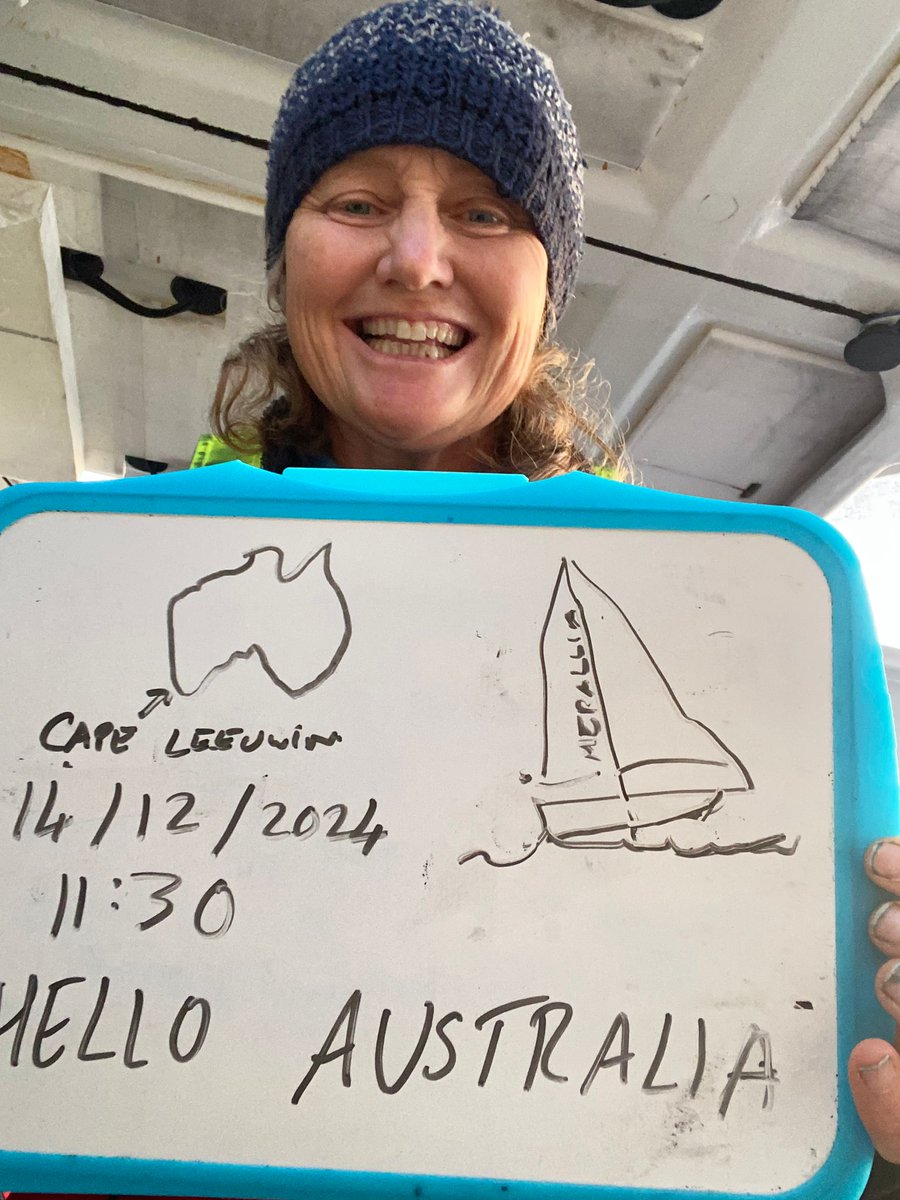 CAPE LEEUWIN
14/12/2024
11:30
HELLO AUSTRALIA
MERALLIA